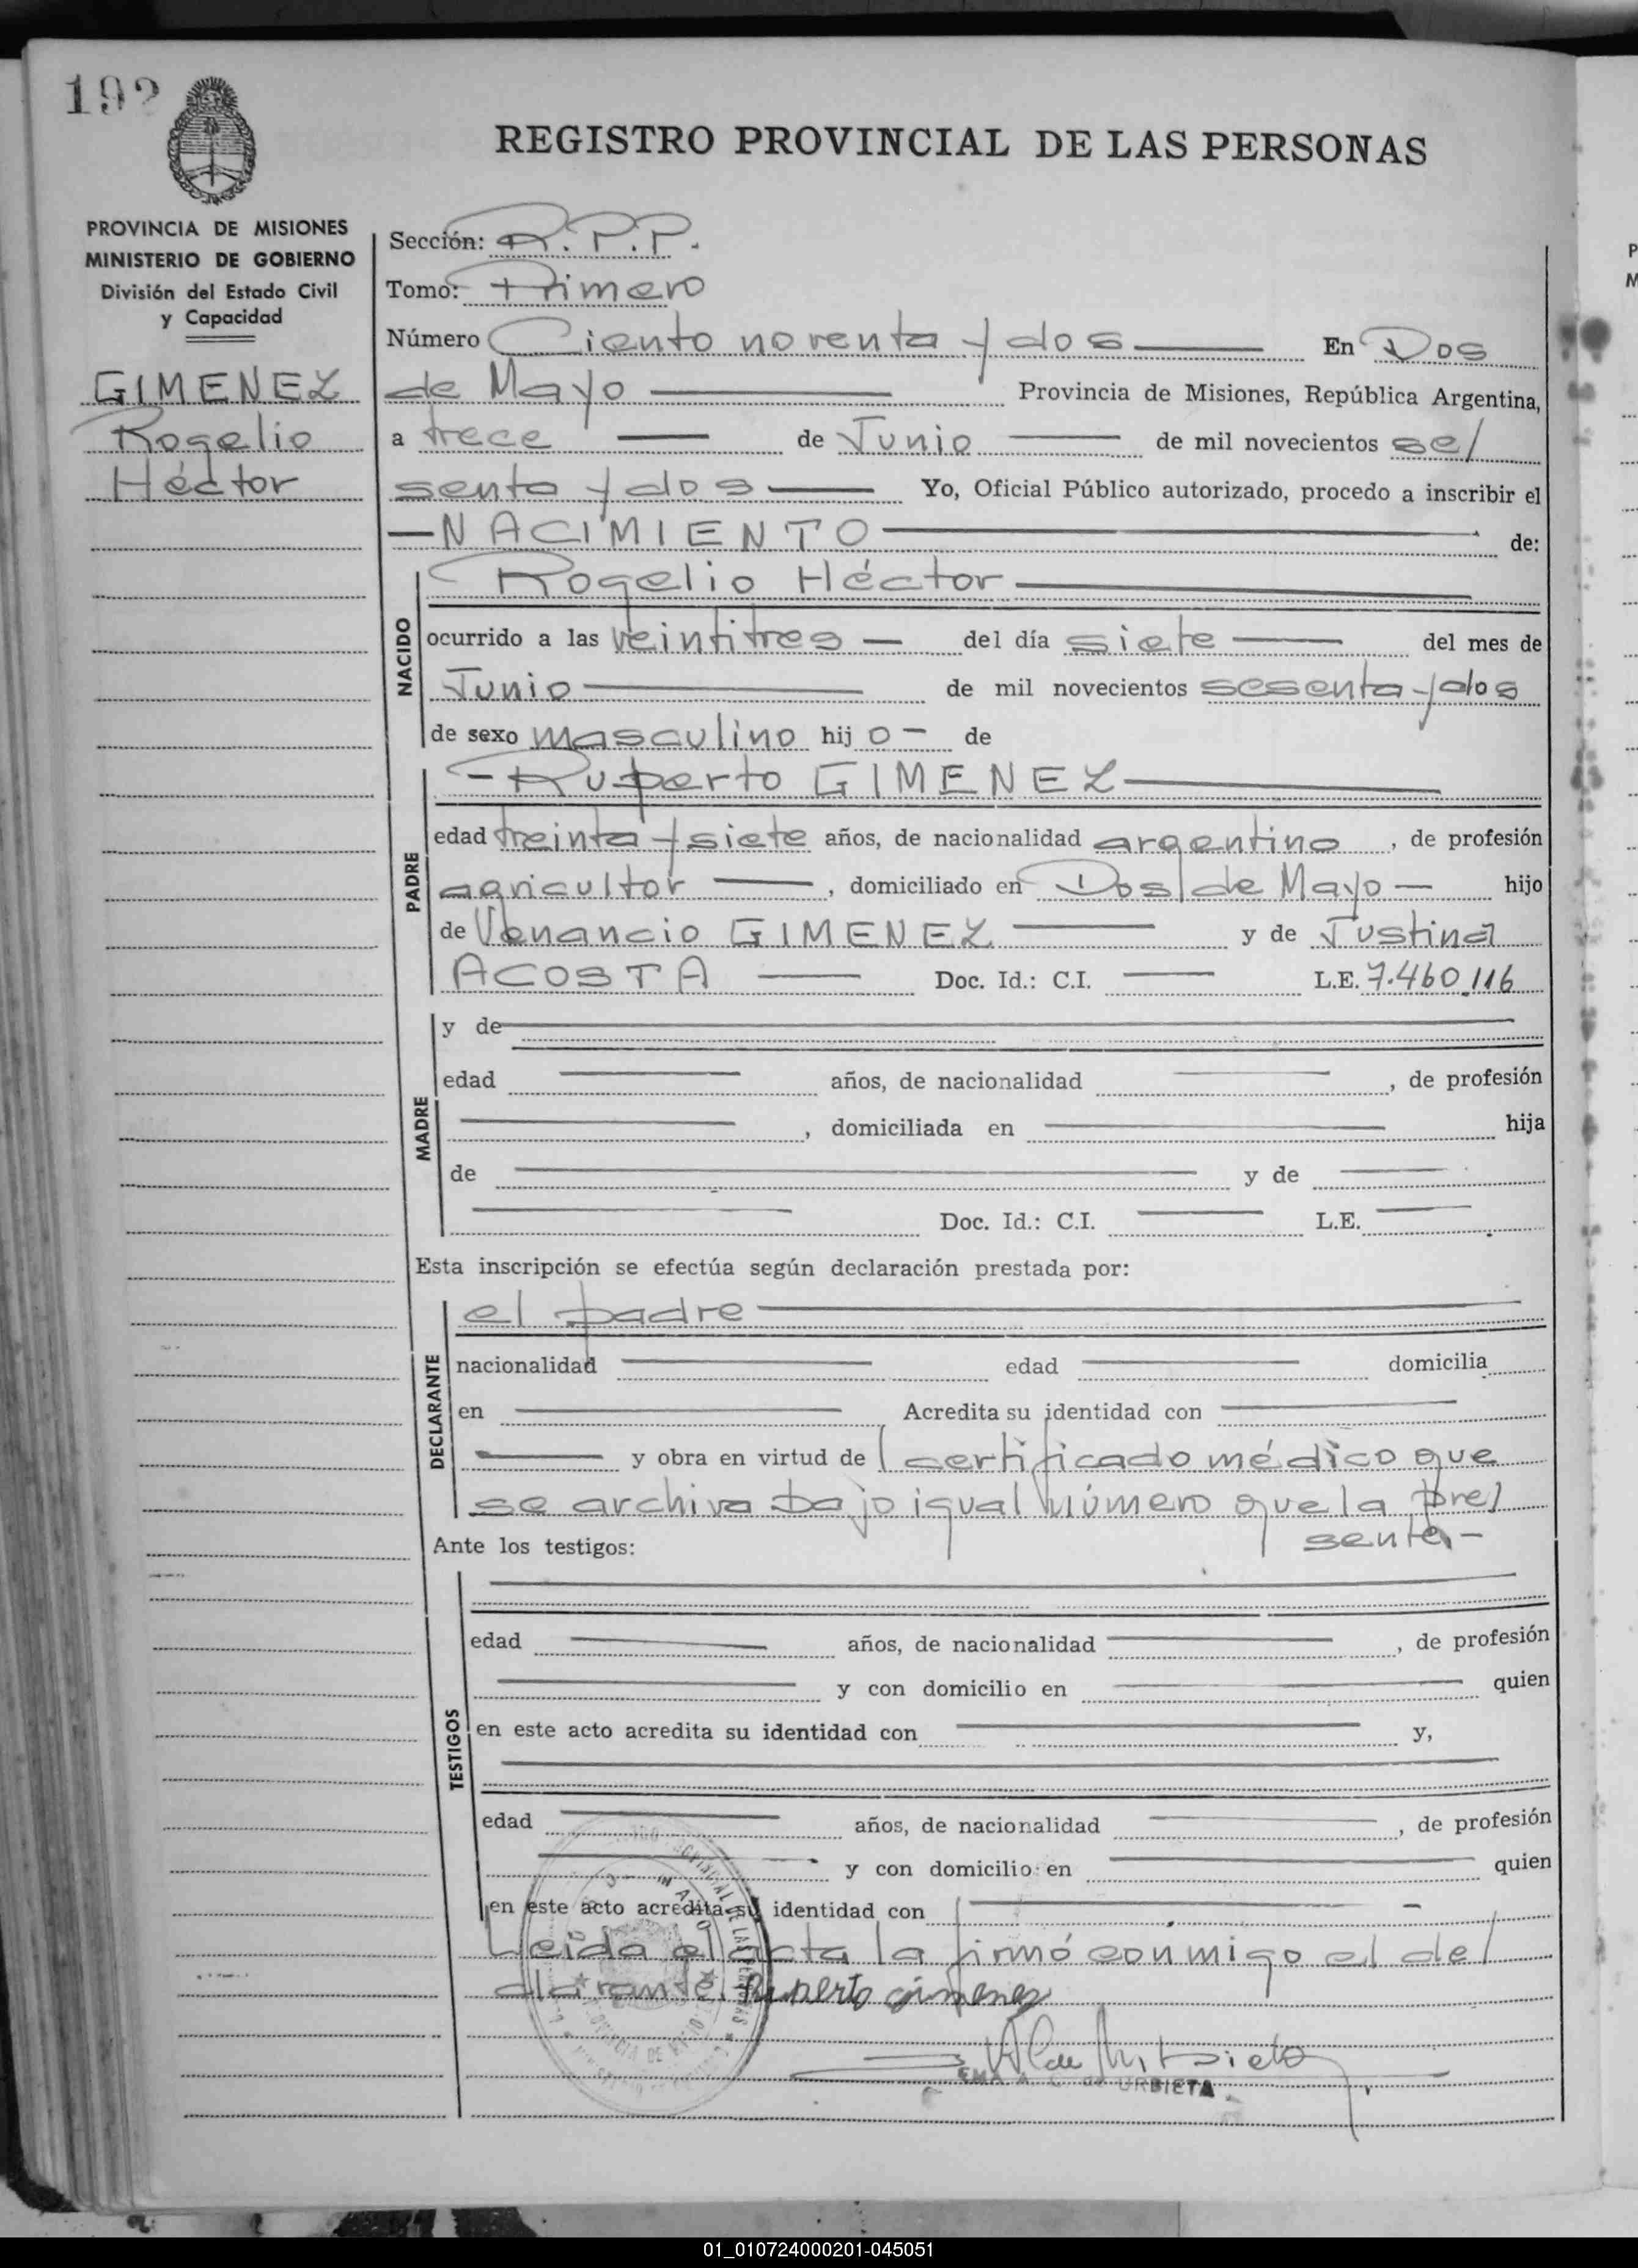 192
REGISTRO PROVINCIAL DE LAS PERSONAS
PROVINCIA DE MISIONES
MINISTERIO DE GOBIERNO
División del Estado Civil
y Capacidad
GIMENEZ
Rogelio
Héctor
Sección: R.P.P.
Tomo: Primero
Número Ciento noventa y dos En Dos
de Mayo Provincia de Misiones, República Argentina,
a trece de Junio de mil novecientos se/
senta y dos Yo, Oficial Público autorizado, procedo a inscribir el
NACIMIENTO de:
NACIDO
Rogelio Héctor
ocurrido a las veintitres del día siete del mes de
Junio de mil novecientos sesenta y dos
de sexo masculino hij o de
PADRE
Ruperto GIMENEZ
edad treinta y siete años, de nacionalidad argentino, de profesión
agricultor, domiciliado en Dos de Mayo hijo
de Venancio GIMENEZ y de Justina
ACOSTA Doc. Id.: C.I. L.E. 7.460.116
MADRE
y de
edad años, de nacionalidad , de profesión
, domiciliada en hija
de y de
Doc. Id.: C.I. L.E.
Esta inscripción se efectúa según declaración prestada por:
DECLARANTE
el padre
nacionalidad edad domicilia
en Acredita su identidad con
y obra en virtud de l certificado médico que
se archiva bajo igual número que la pre/
sente.-
Ante los testigos:
TESTIGOS
edad años, de nacionalidad , de profesión
y con domicilio en quien
en este acto acredita su identidad con y,
edad años, de nacionalidad , de profesión
y con domicilio en quien
en este acto acredita su identidad con
Leida el acta la firmó conmigo el de/
clarante. Ruperto Gimenez
URBIETA
01_010724000201-045051